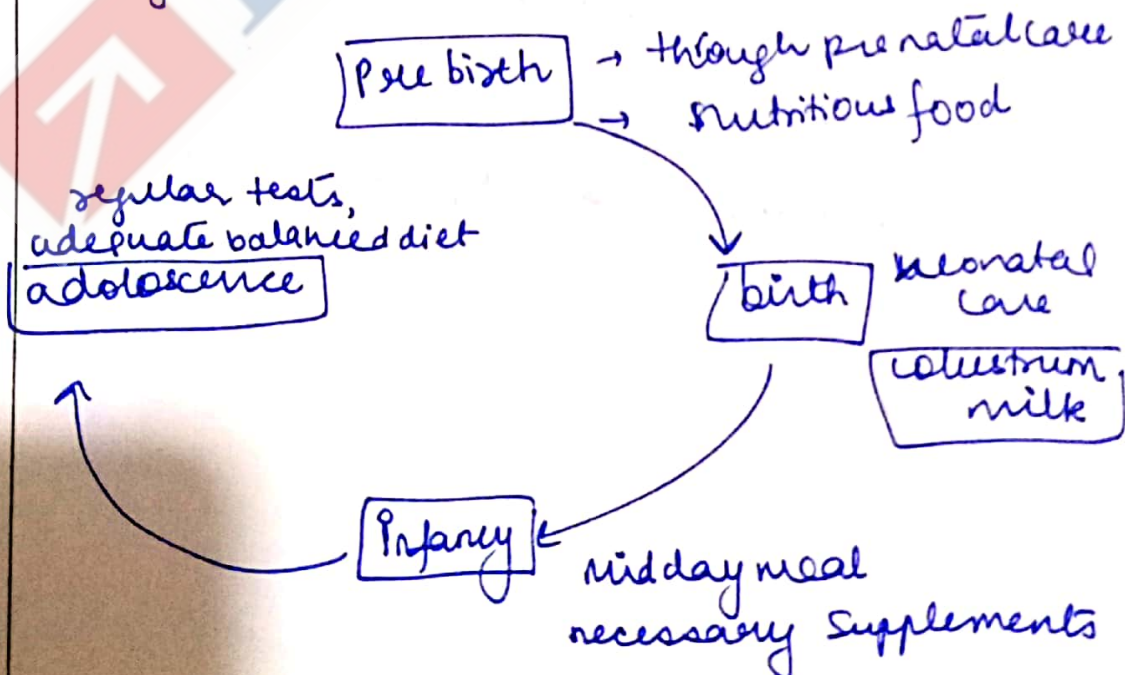 Pre birth → through prenatal care
→ nutritious food
regular tests,
adequate balanced diet
adoloscence
birth
neonatal
care
colustrum
milk
Infancy
midday meal
necessary supplements